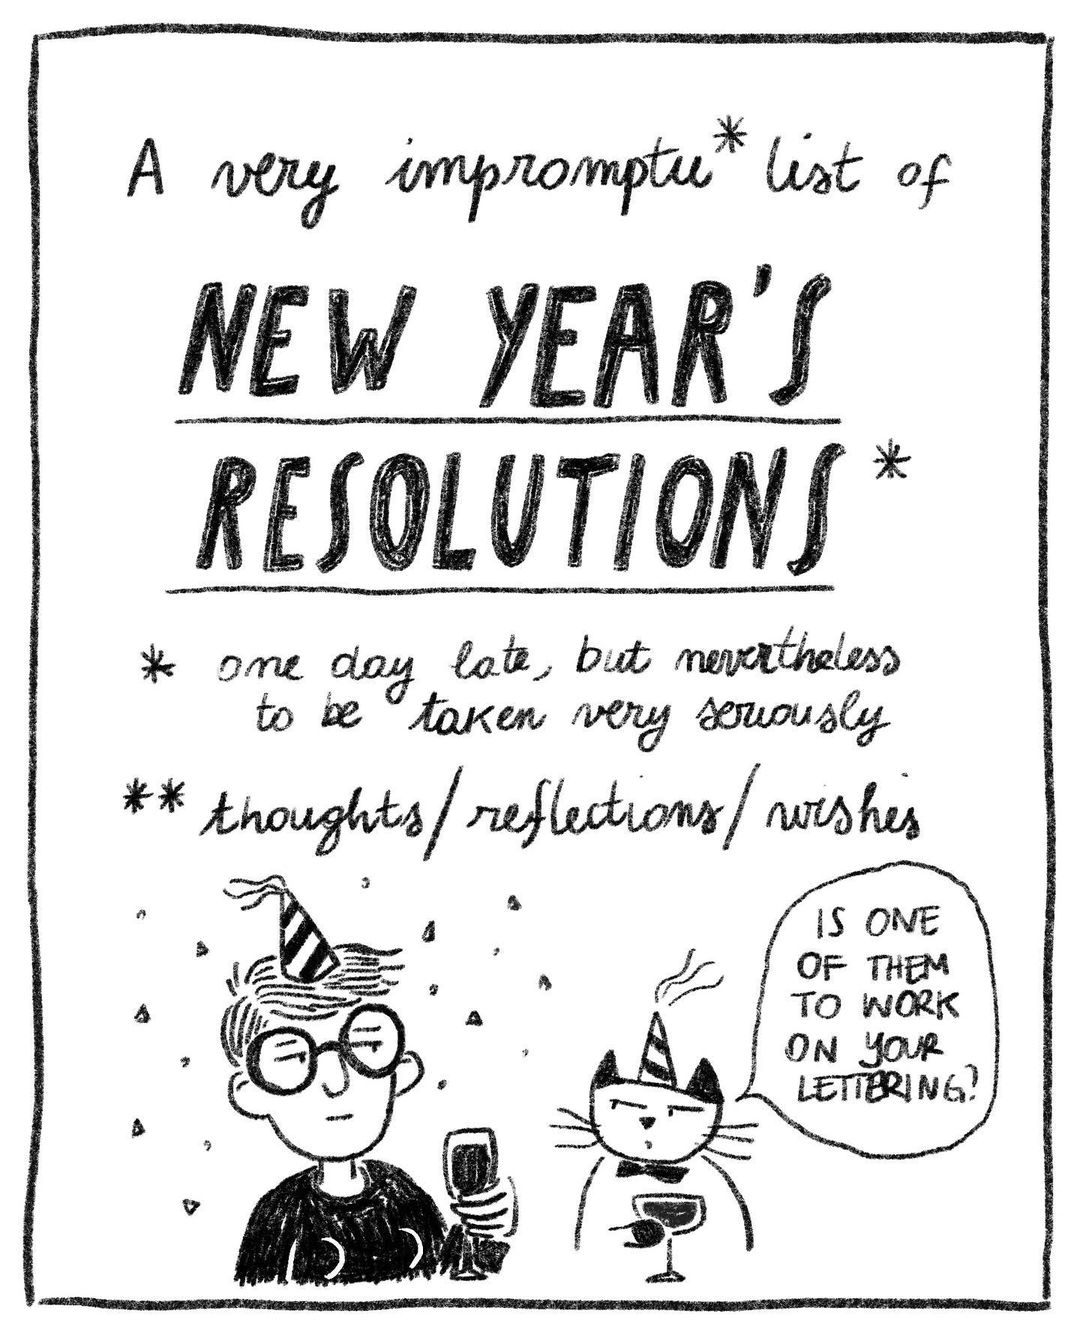 A very impromptu* list of
NEW YEAR'S
RESOLUTIONS*
* one day late, but nevertheless
to be taken very seriously
** thoughts/reflections/wishes
IS ONE
OF THEM
TO WORK
ON YOUR
LETTERING?